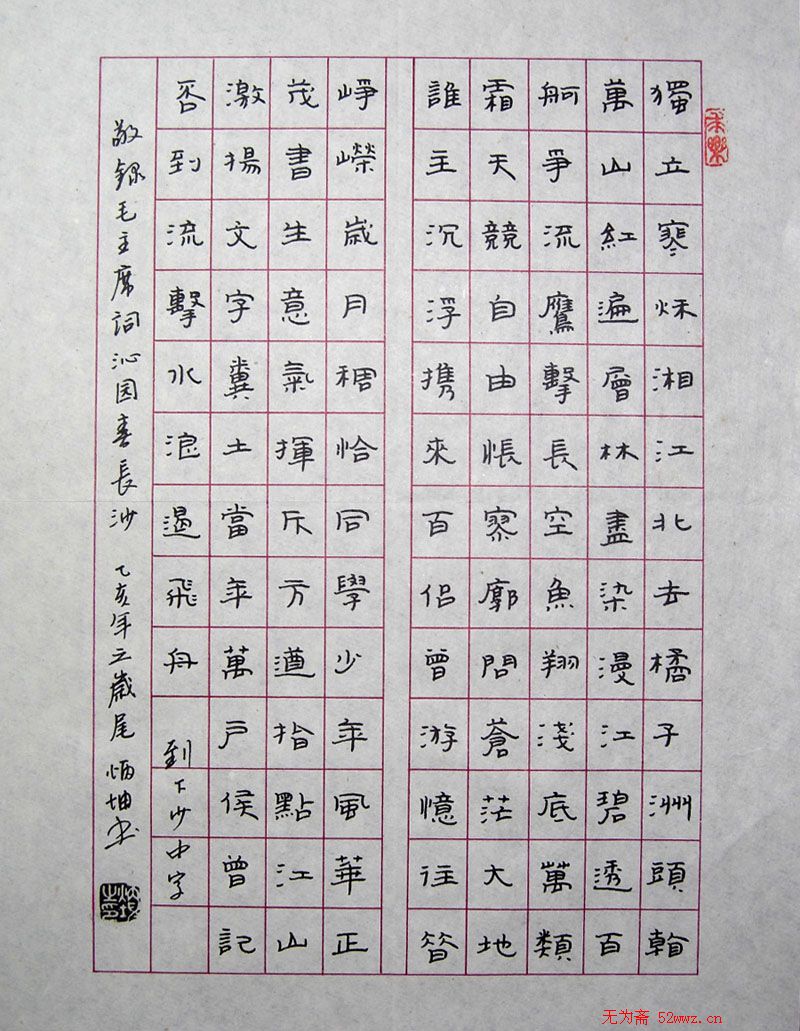 獨立寒秌湘江北去橘子洲頭看
萬山紅遍層林盡染漫江碧透百
舸爭流鷹擊長空魚翔淺底萬類
霜天競自由悵寥廓問蒼茫大地
誰主沉浮携來百侣曾游憶往昔
崢嶸歲月稠恰同學少年風華正
茂書生意氣揮斥方遒指點江山
激揚文字糞土當年萬户侯曾記
否到流擊水浪遏飛舟 到下少中字
敬錄毛主席詞沁园春長沙 乙亥年之歲尾 炳坤书
无为斋 52wwz.cn